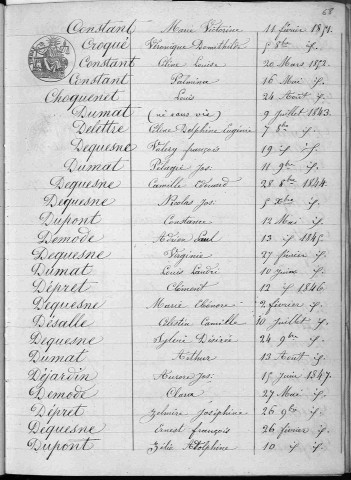 68
Constant Marie Victorine 11 février 1851.
Croqué Véronique Domithilde 5 8bre if.
Constant Céline Louise 20 Mars 1852.
Constant Palmina 16 Mai if.
Choquenet Louis 24 Août if.
Dumat (né sans vie) 9 juillet 1843.
Delettre Céline Delphine Eugénie 7 8bre if.
Dequesne Valéry françois 19 if if.
Dumat Pélagie Jos: 11 9bre if.
Dequesne Camille Edouard 28 8bre 1844.
Dequesne Nicolas Jos: 5 Xbre if.
Dupont Constance 12 Mai if.
Demode Adrien Paul 13 if 1845.
Dequesne Virginie 27 février if.
Dumat Louis Landri 10 juin if.
Dépret Clément 12 if 1846.
Dequesne Marie Eléonore 2 février if.
Désalle Célestin Camille 10 juillet if.
Dequesne Sylvie Désirée 24 9bre if.
Dumat Arthur 13 Août if.
Déjardin Aurore Jos: 15 juin 1847.
Demode Clara 27 Mai if.
Dépret Zelmire Joséphine 26 9bre if.
Dequesne Ernest françois 26 février if.
Dupont Zélie Adolphine 10 if if.